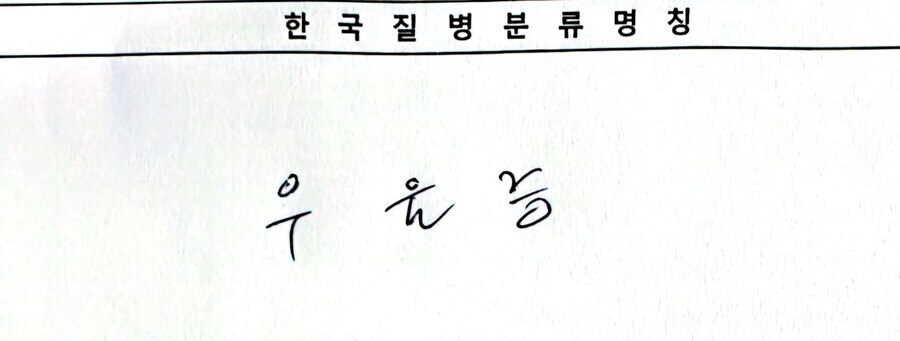 한국질병분류명칭
우울증